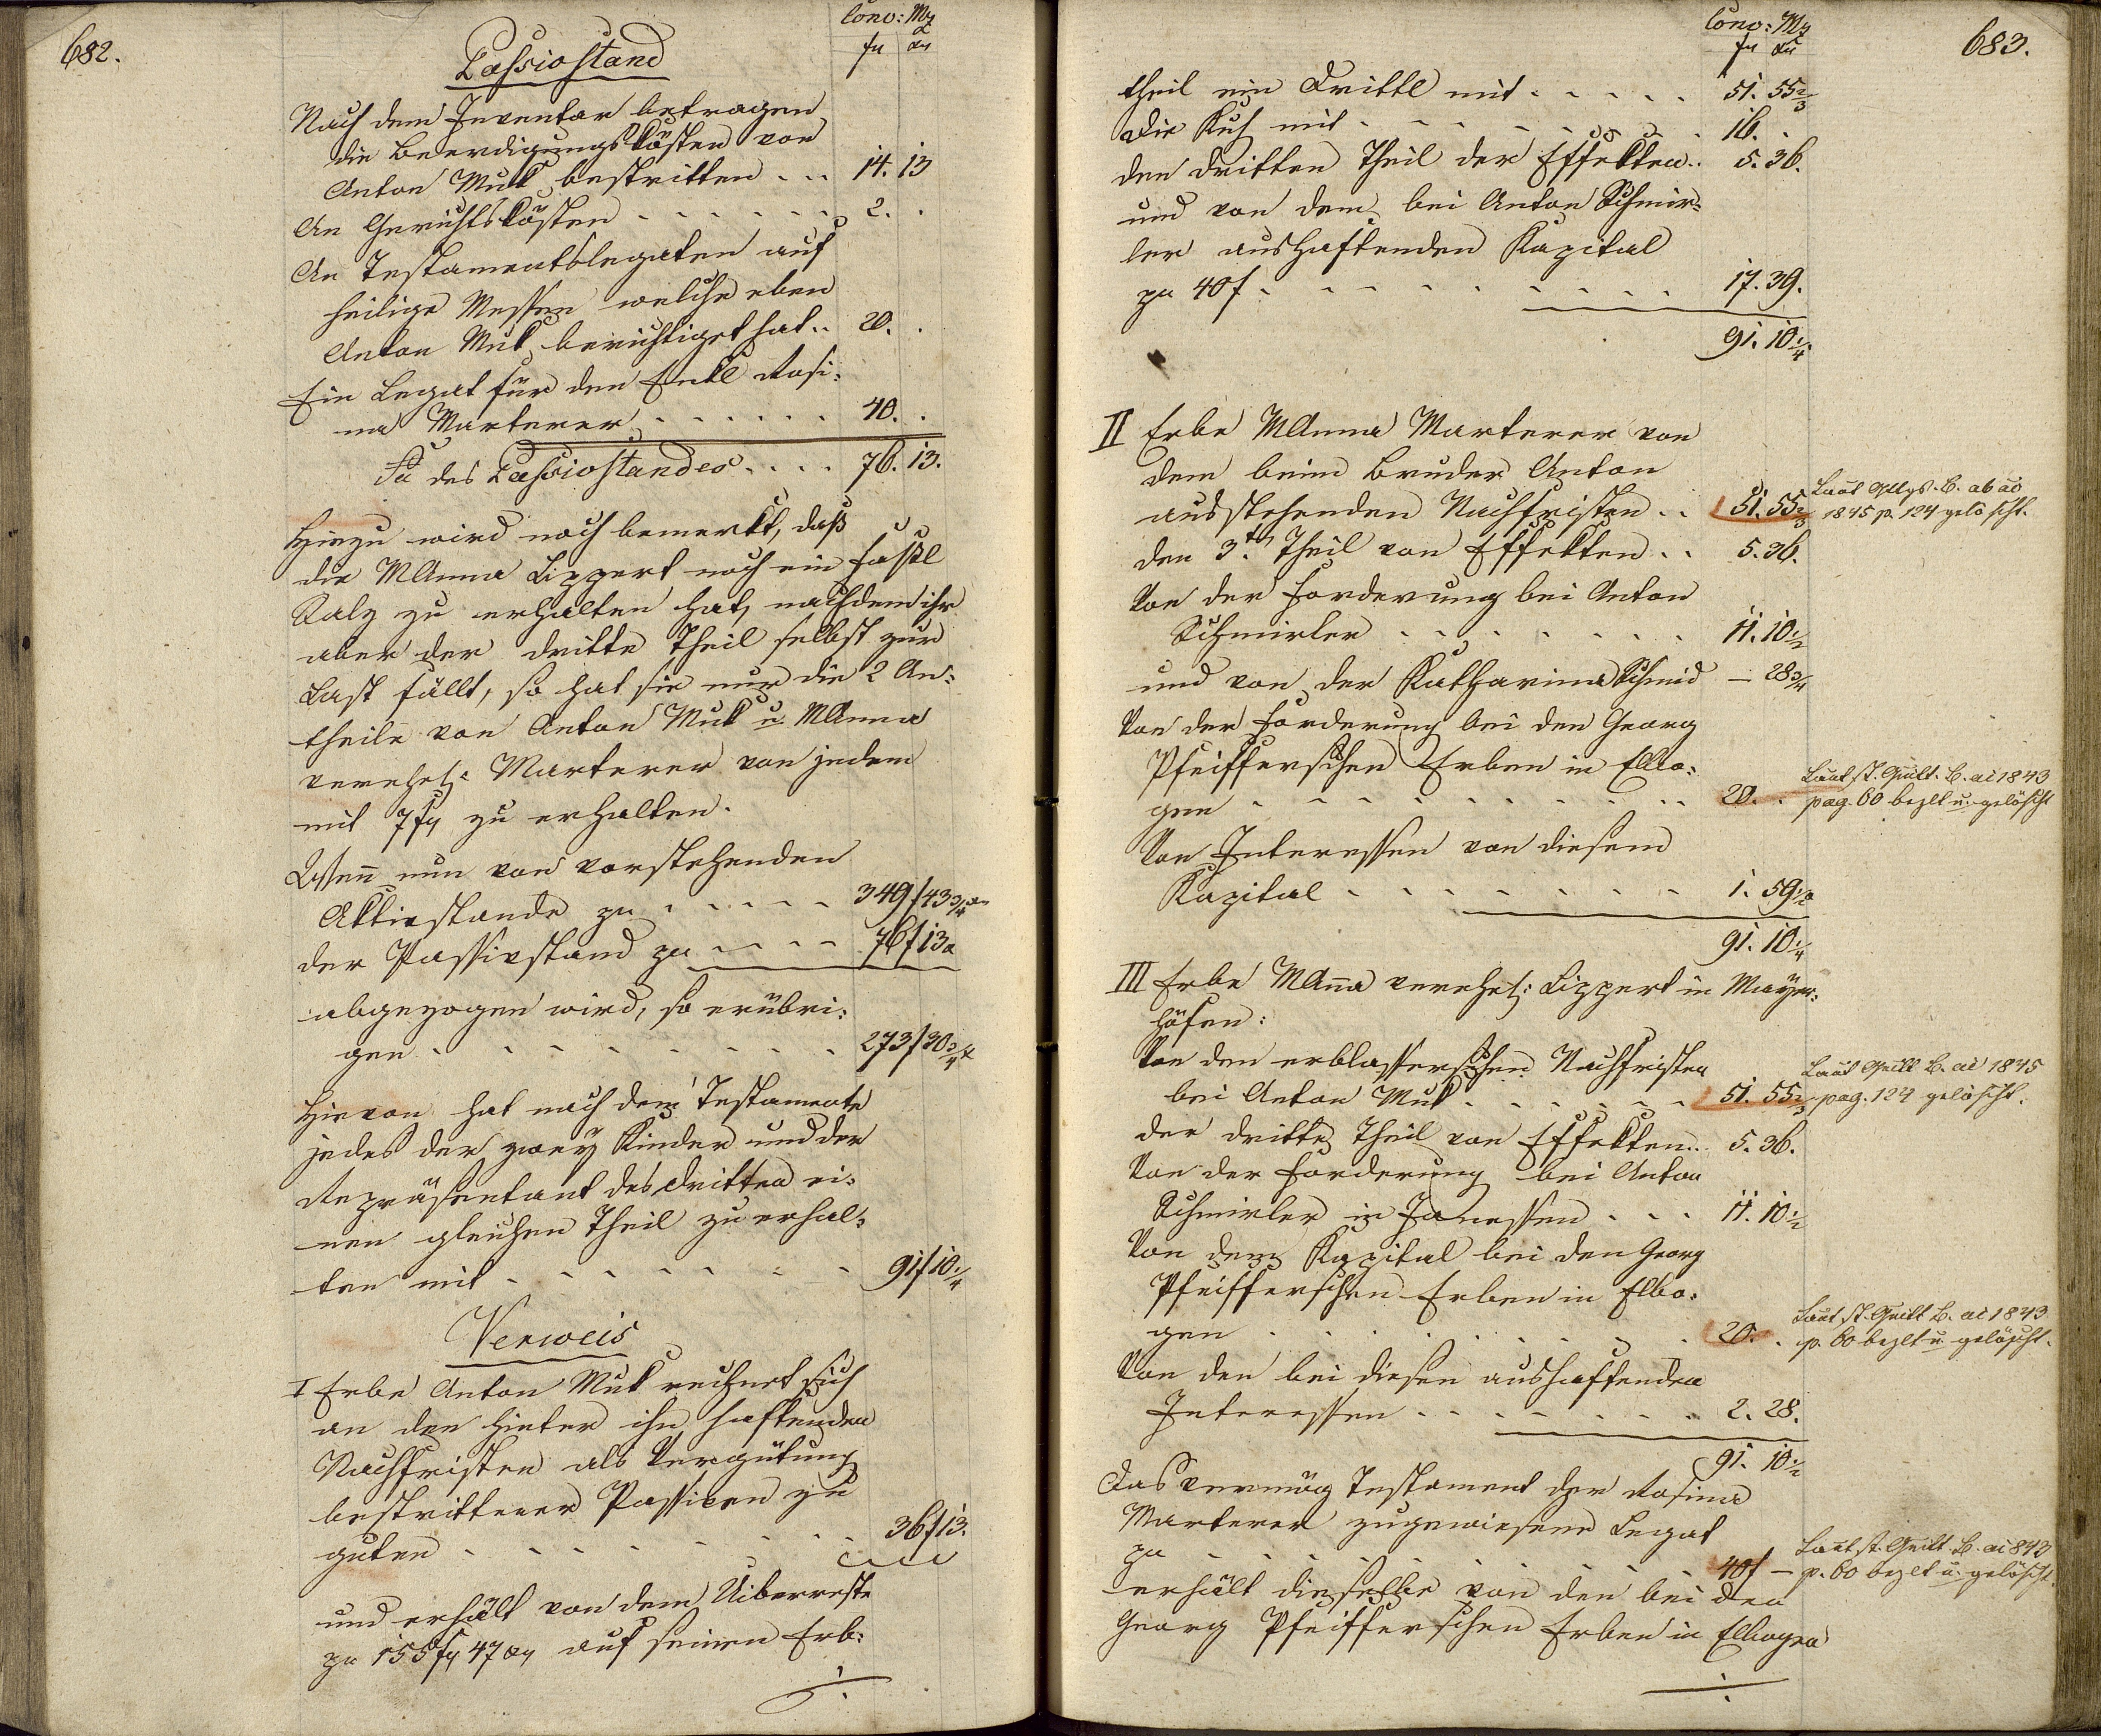 682.
Conv: Mz
fr xr
Passivstand
Nach dem Inventar betragen
die Beerdigungskösten von
Anton Muk bestritten . . . 14. 13
An Gerichtskösten . . . . . . 2. .
An Testamentslegaten auf
heilige Messen welche eben
Anton Muk berichtiget hat . . 20. .
Ein Legat für den Enkl Rosi:
na Marterer . . . . . . 40. .
Sa des Passivstandes . . . . 76. 13.
Hiezu wird noch bemerkt, daß
die MAnna Lippert noch ein Faßl
Salz zu erhalten hat, nachdem ihr
aber der dritte Theil selbst zur
Last fällt, so hat sie nur die 2 An:
theile von Anton Muk u. MAnna
verehel: Marterer von jedem
mit 7 fr zu erhalten.
Wenn nun von vorstehenden
Aktivstande zu . . . . . 349f 43 3/4 xr
der Passivstand zu . . . . 76f 13 x
abgezogen wird, so erübri:
gen . . . . . . . . . 273f 30 3/4 x
Hievon hat nach dem Testamente
jedes der zwey Kinder und der
Repräsentant des dritten ei:
nen gleichen Theil zu erhal:
ten mit . . . . . . . . 91f 10 1/4
Verweis
I Erbe Anton Muk rechnet sich
an den hinter ihn haftenden
Nachfristen als Vergütung
bestrittener Passiven zu
guten . . . . . . . . 36f 13.
und erhält von dem Uiberreste
zu 155 fr 47 xr auf seinen Erb:
./.
683.
Conv: Mz
fr xr
theil ein Drittl mit . . . . . 51. 55 2/3
die Kuh mit . . . . . . . . 16. .
den dritten Theil der Effekten . . 5. 36.
und von dem bei Anton Schmir=
ler aushaftenden Kapital
zu 40f . . . . . . . . . 17. 39.
91. 10 1/4
II Erbe MAnna Marterer von
dem beim Bruder Anton
ausstehenden Nachfristen . . 51. 55 2/3
Laut B. ab ao
1845 p. 124 gelöscht.
den 3ten Theil von Effekten . . 5. 36.
Von der Forderung bei Anton
Schmirler . . . . . . . . 11. 10 1/2
und von der Katharina Schmid — 28 3/4
Von der Forderung bei den Georg
Pfeifferschen Erben in Elbo:
gen . . . . . . . . . . 20. .
Laut st. Quitt. B. ai 1843
pag. 60 bezlt u. gelöscht
Von Interessen von diesem
Kapital . . . . . . . . 1. 59 1/2
91. 10 1/4
III Erbe MAnna verehel: Lippert in Mayer:
höfen:
Von den erblasserischen Nachfristen
bei Anton Muk . . . . . . 51. 55 2/3
Laut Quitt B. ai 1845
pag. 124 gelöscht.
der dritte Theil von Effekten . . 5. 36.
Von der Forderung bei Anton
Schmirler in Janessen . . . 11. 10 1/2
Von dem Kapital bei den Georg
Pfeifferschen Erben in Elbo:
gen . . . . . . . . . . 20. .
Laut st. Quitt B. ai 1843
p. 60 bezlt u. gelöscht.
Von den bei diesen aushaftenden
Interessen . . . . . . . 2. 28.
91. 10 1/2
Das vermög Testament der Rosina
Marterer zugewiesene Legat
zu . . . . . . . . . . 40f —
Laut st. Quitt. B. ai 843
p. 60 bezlt u. gelöscht.
erhält dieselbe von den bei den
Georg Pfeifferschen Erben in Elbogen
./.